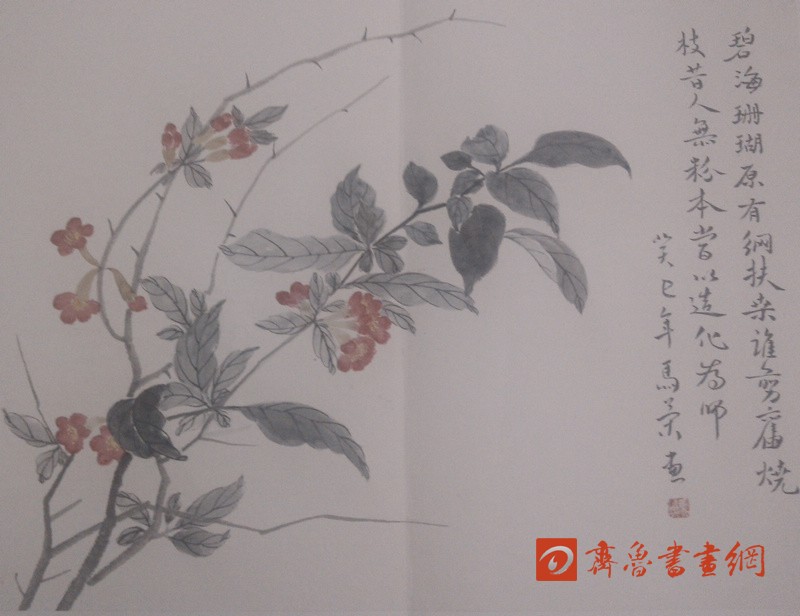 碧海珊瑚原有網扶桑誰剪舊燒
枝昔人無粉本嘗以造化為師
癸巳年馬榮畫
齊魯書畫網